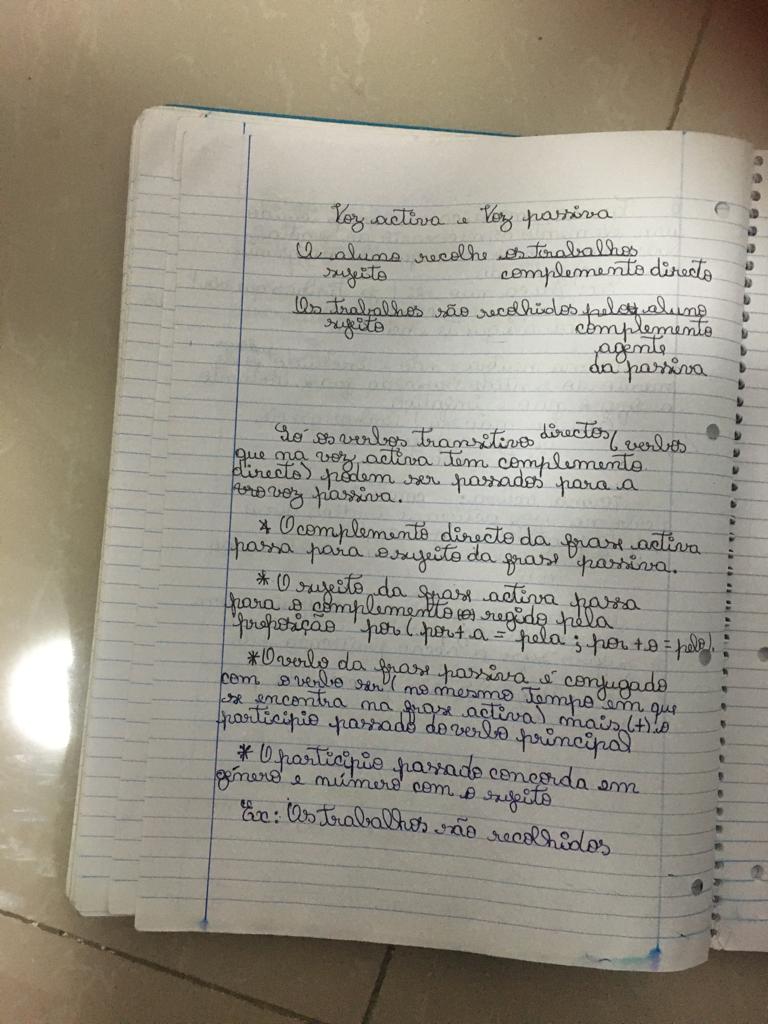 Voz activa e Voz passiva
O aluno recolhe os trabalhos
sujeito complemento directo
Os trabalhos são recolhidos pelo aluno
sujeito complemento
agente
da passiva
Só os verbos transitivos directos (verbos
que na voz activa tem complemento
directo) podem ser passados para a
voz passiva.
* O complemento directo da frase activa
passa para o sujeito da frase passiva.
* O sujeito da frase activa passa
para o complemento (o) regido pela
preposição por (por + a = pela ; por + o = pelo).
* O verbo da frase passiva é conjugado
com o verbo ser (no mesmo tempo em que
se encontra na frase activa) mais (+) o
particípio passado do verbo principal
* O particípio passado concorda em
género e número com o sujeito
Ex: Os trabalhos são recolhidos